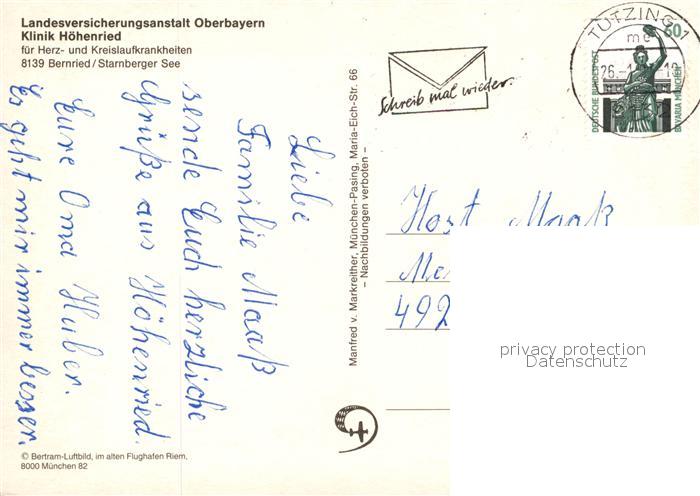 Landesversicherungsanstalt Oberbayern
Klinik Höhenried
für Herz- und Kreislaufkrankheiten
8139 Bernried / Starnberger See
Liebe
Familie Maaß
sende Euch herzliche
Grüße aus Höhenried.
Eure Oma Huber.
Es geht mir immer besser.
© Bertram-Luftbild, im alten Flughafen Riem,
8000 München 82
Manfred v. Markreither, München-Pasing, Maria-Eich-Str. 66
– Nachbildungen verboten –
Schreib mal wieder.
TUTZING 1
60
DEUTSCHE BUNDESPOST
BAVARIA MÜNCHEN
Host Maaß
492
privacy protection
Datenschutz